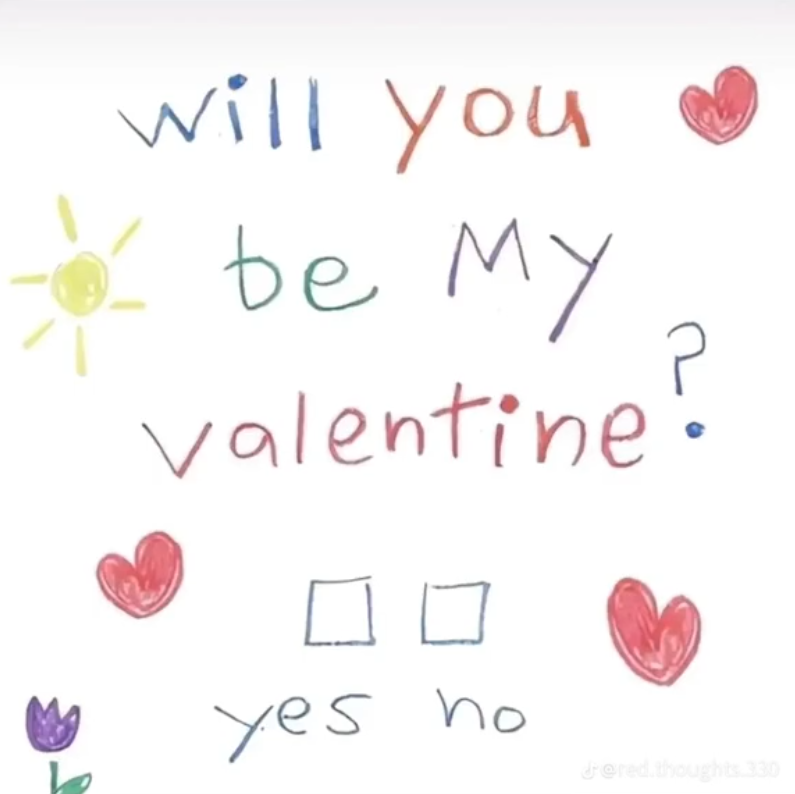 will you
be My
valentine?
yes no
@red.thoughts.330